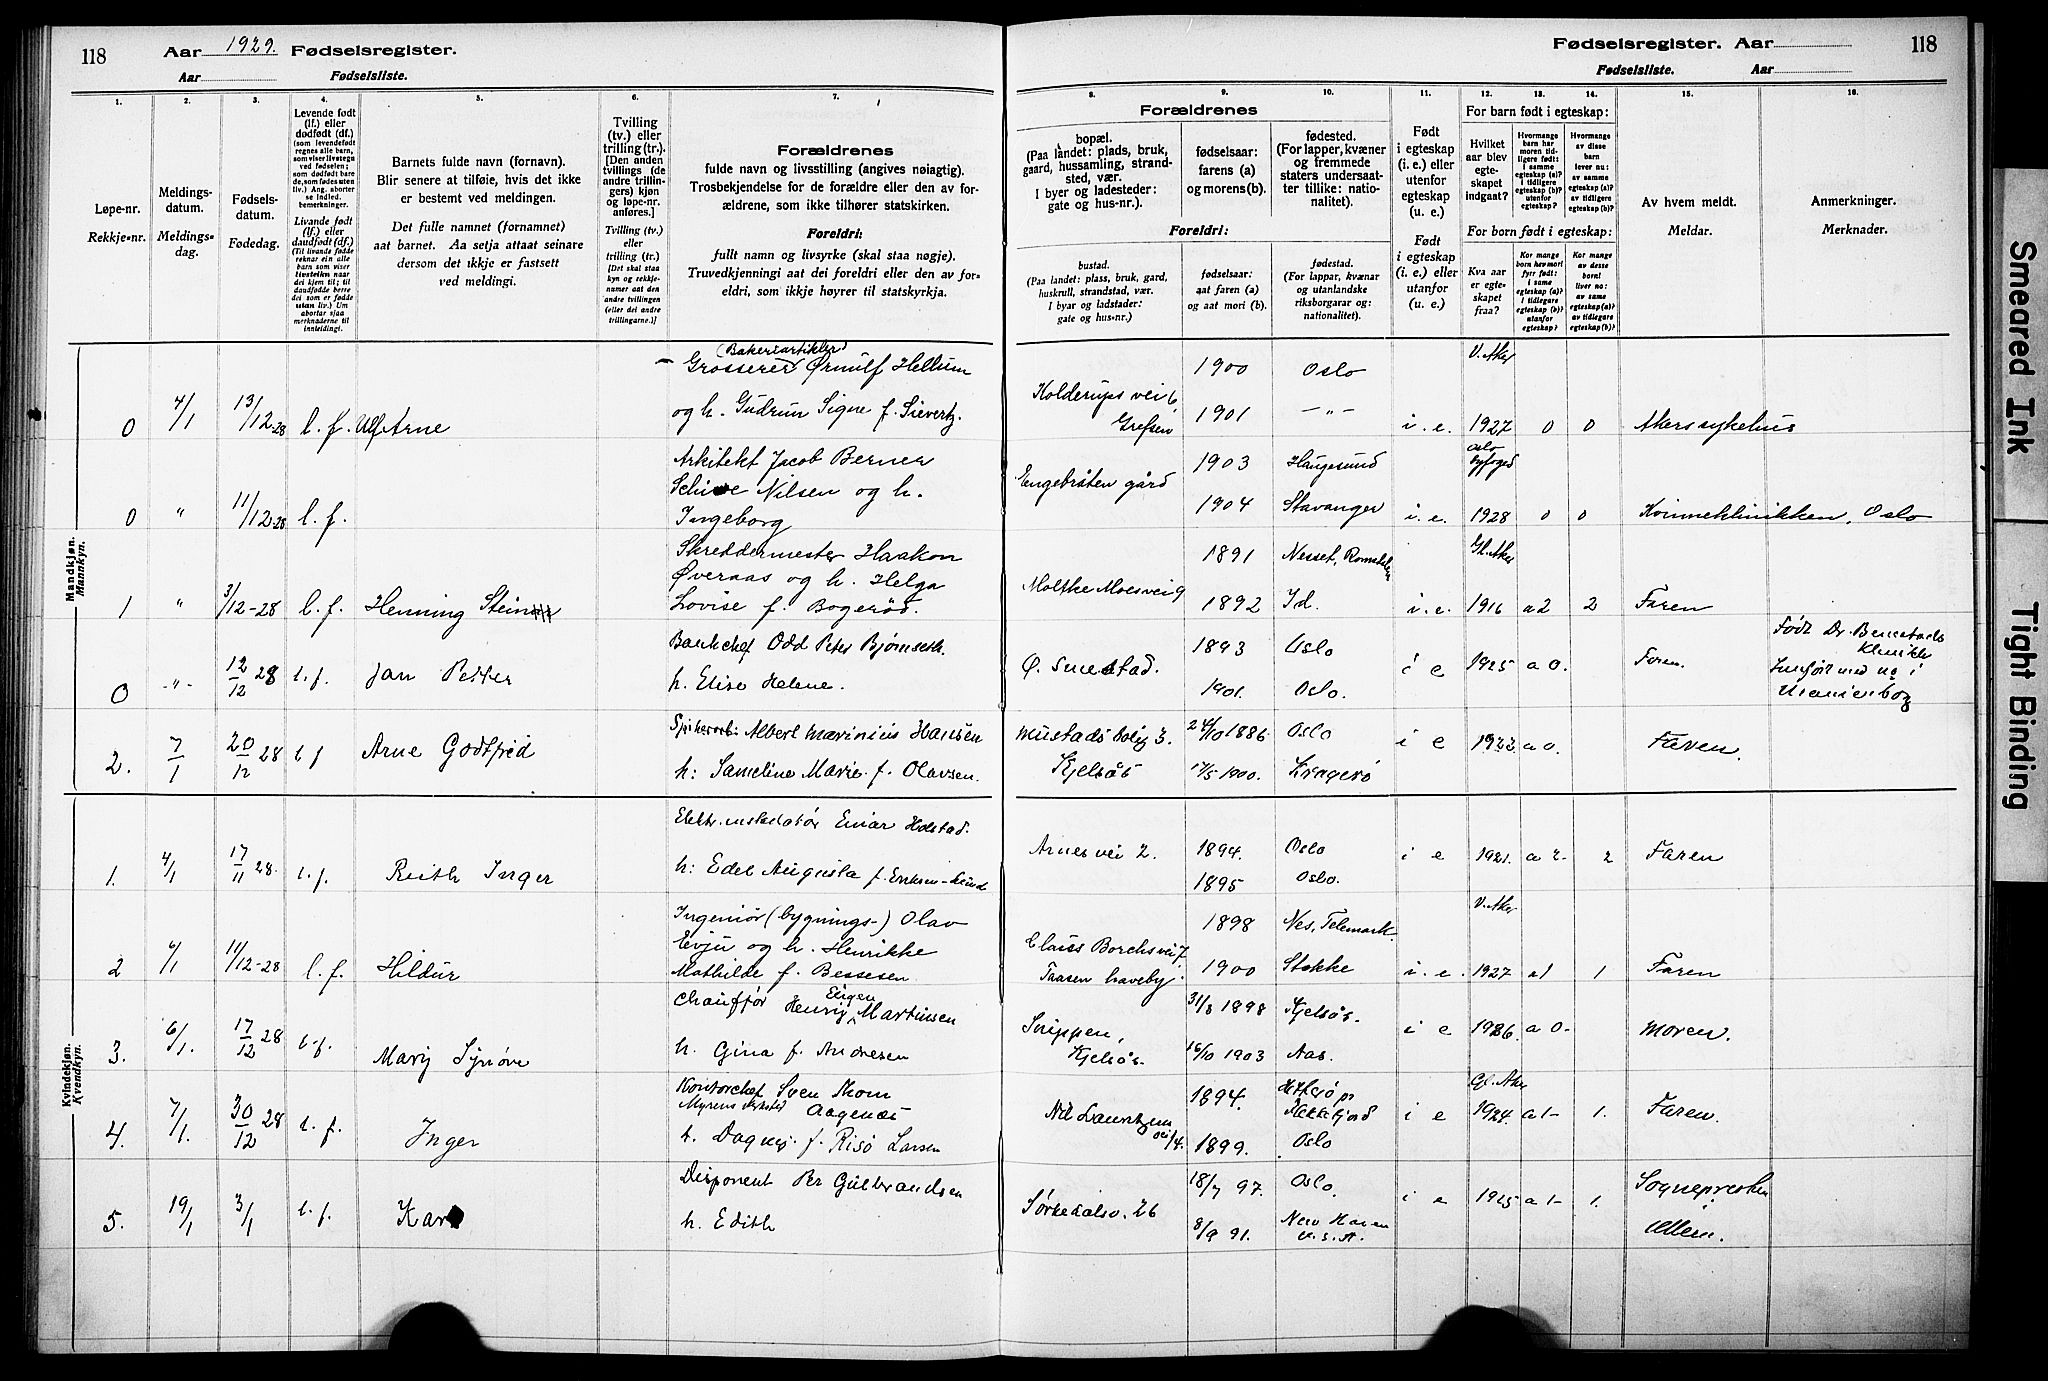 118 Aar 1929. Fødselsregister.
Aar Fødselsliste.
Fødselsregister. Aar 118
Fødselsliste. Aar
1. 2. 3. 4. 5. 6. 7.
Løpe-nr.
Rekkje-nr.
Meldings-
datum.
Meldings-
dag.
Fødsels-
datum.
Fødedag.
Levende født
(lf.) eller
dødfødt (df.)
(som levendefødt
regnes alle barn,
som viser livstegn
ved fødselen;
som dødfødt bare
de, som fødes uten
liv.) Ang. aborter
se indled.
bemerkninger.
Livande født
(lf.) eller
daudfødt (df.)
(Til livande fødde
reknar ein alle
barn som viser
livsteikn naar
dei kjem til; til
daudfødde berre
dei som er fødde
utan liv.) Um
abortar sjaa
merknaderne til
innleidingi.
Barnets fulde navn (fornavn).
Blir senere at tilføie, hvis det ikke
er bestemt ved meldingen.
Det fulle namnet (fornamnet)
aat barnet. Aa setja attaat seinare
dersom det ikkje er fastsett
ved meldingi.
Tvilling
(tv.) eller
trilling (tr.).
[Den anden
tvillings (de
andre trillin-
gers) kjøn
og løpe-nr.
anføres.]
Tvilling (tv.)
eller
trilling (tr.)
[Det skal staa
kyn og rekkje-
numer aat den
andre tvillingen
(eller dei andre
trillingarne.)]
Forældrenes
fulde navn og livsstilling (angives nøiagtig).
Trosbekjendelse for de forældre eller den av for-
ældrene, som ikke tilhører statskirken.
Foreldri:
fullt namn og livsyrke (skal staa nøgje).
Truvedkjenningi aat dei foreldri eller den av for-
eldri, som ikkje høyrer til statskyrkja.
8. 9. 10. 11. 12. 13. 14. 15. 16.
Forældrenes
bopæl.
(Paa landet: plads, bruk,
gaard, hussamling, strand-
sted, vær.
I byer og ladesteder:
gate og hus-nr.).
fødselsaar:
farens (a)
og morens (b).
fødested.
(For lapper, kvæner
og fremmede
staters undersaat-
ter tillike: natio-
nalitet).
Foreldri:
bustad.
(Paa landet: plass, bruk, gard,
huskrull, strandstad, vær.
I byar og ladstader:
gate og hus-nr.)
fødselsaar:
aat faren (a)
og aat mori (b).
fødestad.
(For lappar, kvænar
og utanlandske
riksborgarar og:
nationalitet).
Født
i egteskap
(i. e.) eller
utenfor
egteskap
(u. e.).
Født
i egteskap
(i. e.) eller
utanfor
(u. e.).
For barn født i egteskap:
Hvilket
aar blev
egte-
skapet
indgaat?
Hvormange
barn har
moren tid-
ligere født:
i samme
egteskap (a)?
i tidligere
egteskap (b)?
utenfor
egteskap?
Hvormange
av disse
barn
lever nu:
av samme
egteskap (a)?
av tidligere
egteskap (b)?
For barn født i egteskap:
Kva aar
er egte-
skapet
fraa?
Kor mange
born hev mori
fyrr født:
i same
egteskap (a)?
i tidlegare
egteskap (b)?
utanfor
egteskap?
Kor mange
av desse
borni
liver no:
av same
egteskap (a)?
av tidlegare
egteskap (b)?
Av hvem meldt.
Meldar.
Anmerkninger.
Merknader.
Mandkjøn.
Mannkyn.
0 4/1 13/12-28 l.f. Ulf Arne
(Bakeriartikler)
Grosserer Ørnulf Hellum
og h. Gudrun Signe f. Sievertz.
Holderups vei 6 Grefsen 1900 Oslo
1901 —"— i.e. V. Aker 1927 0 0 Akers sykehus
0 " 11/12-28 l.f.
Arkitekt Jacob Berner
Schive Nilsen og h.
Ingeborg
Engebråten gård 1903 Haugesund
1904 Stavanger i.e. Oslo byfoged 1928 0 0 Kvinneklinikken, Oslo
1 " 3/12-28 l.f. Henning Stein
Skreddermester Haakon
Øveraas og h. Helga
Lovise f. Bogerød.
Moltke Moes vei 9 1891 Nesset, Romsdalen
1892 Id. i.e. Gl. Aker 1916 a2 2 Faren
0 -"- 12/12 28 l.f. Jan Petter
Bankchef Odd Peter Bjørnseth
h. Elise Helene.
Ø. Smestad. 1893 Oslo
1901. Oslo. i e 1925 a 0. Faren.
Født Dr. Bennestads
Klinikk
Innført med no i
Uranienborg
2. 7/1 20/12 28 l.f Arne Godtfred
Spikerarb: Albert Marinius Hansen
h: Sameline Marie f. Olavsen.
Mustads bolig 3. Kjelsås 24/10 1886. Oslo
17/5 1900. Kragerø i e 1922 a 0. Faren.
Kvindekjøn.
Kvendkyn.
1. 4/1 17/11 28. l.f. Ruth Inger
Elektr.installatør Einar Holstad.
h: Edel Augusta f. Eriksen-Lund
Arnes vei 2. 1894. Oslo
1895 Oslo. i e 1921. a 2- 2 Faren
2 6/1 11/12-28 l.f. Hildur
Ingeniør (bygnings-) Olav
Evju og h. Henrikke
Mathilde f. Bessesen
Claus Borchs vei 7 Taasen haveby. 1898 Nes, Telemark.
1900 Stokke i.e. V. Aker 1927 a1 1 Faren
3. 6/1. 17/12 28 l.f. Mary Synøve
Chauffør Henrig Eugen Martinsen
h. Gina f. Andresen
Snippen, Kjelsås. 31/3 1898 Kjelsås.
16/10 1903 Aas. i e 1926. a 0- Moren.
4. 7/1. 30/12 28 l.f. Inger
Kontorchef Sven Thom
Myrens verksted Aagenæs
h. Dagny f. Risø Larsen
Nil Lauritzøns vei 4. 1894. Hitterø pr Flekkefjord
1899. Oslo i e Gl. Aker 1924. a 1- 1. Faren.
5. 19/1 3/1 l.f. Kari
Disponent Per Gulbrandsen
h. Edith
Sørkedalsv. 26 18/7 97. Oslo.
8/9 91. New Haven U.S.A. i e 1925 a 1- 1. Sognepresten
i Ullern.
Smeared Ink
Tight Binding